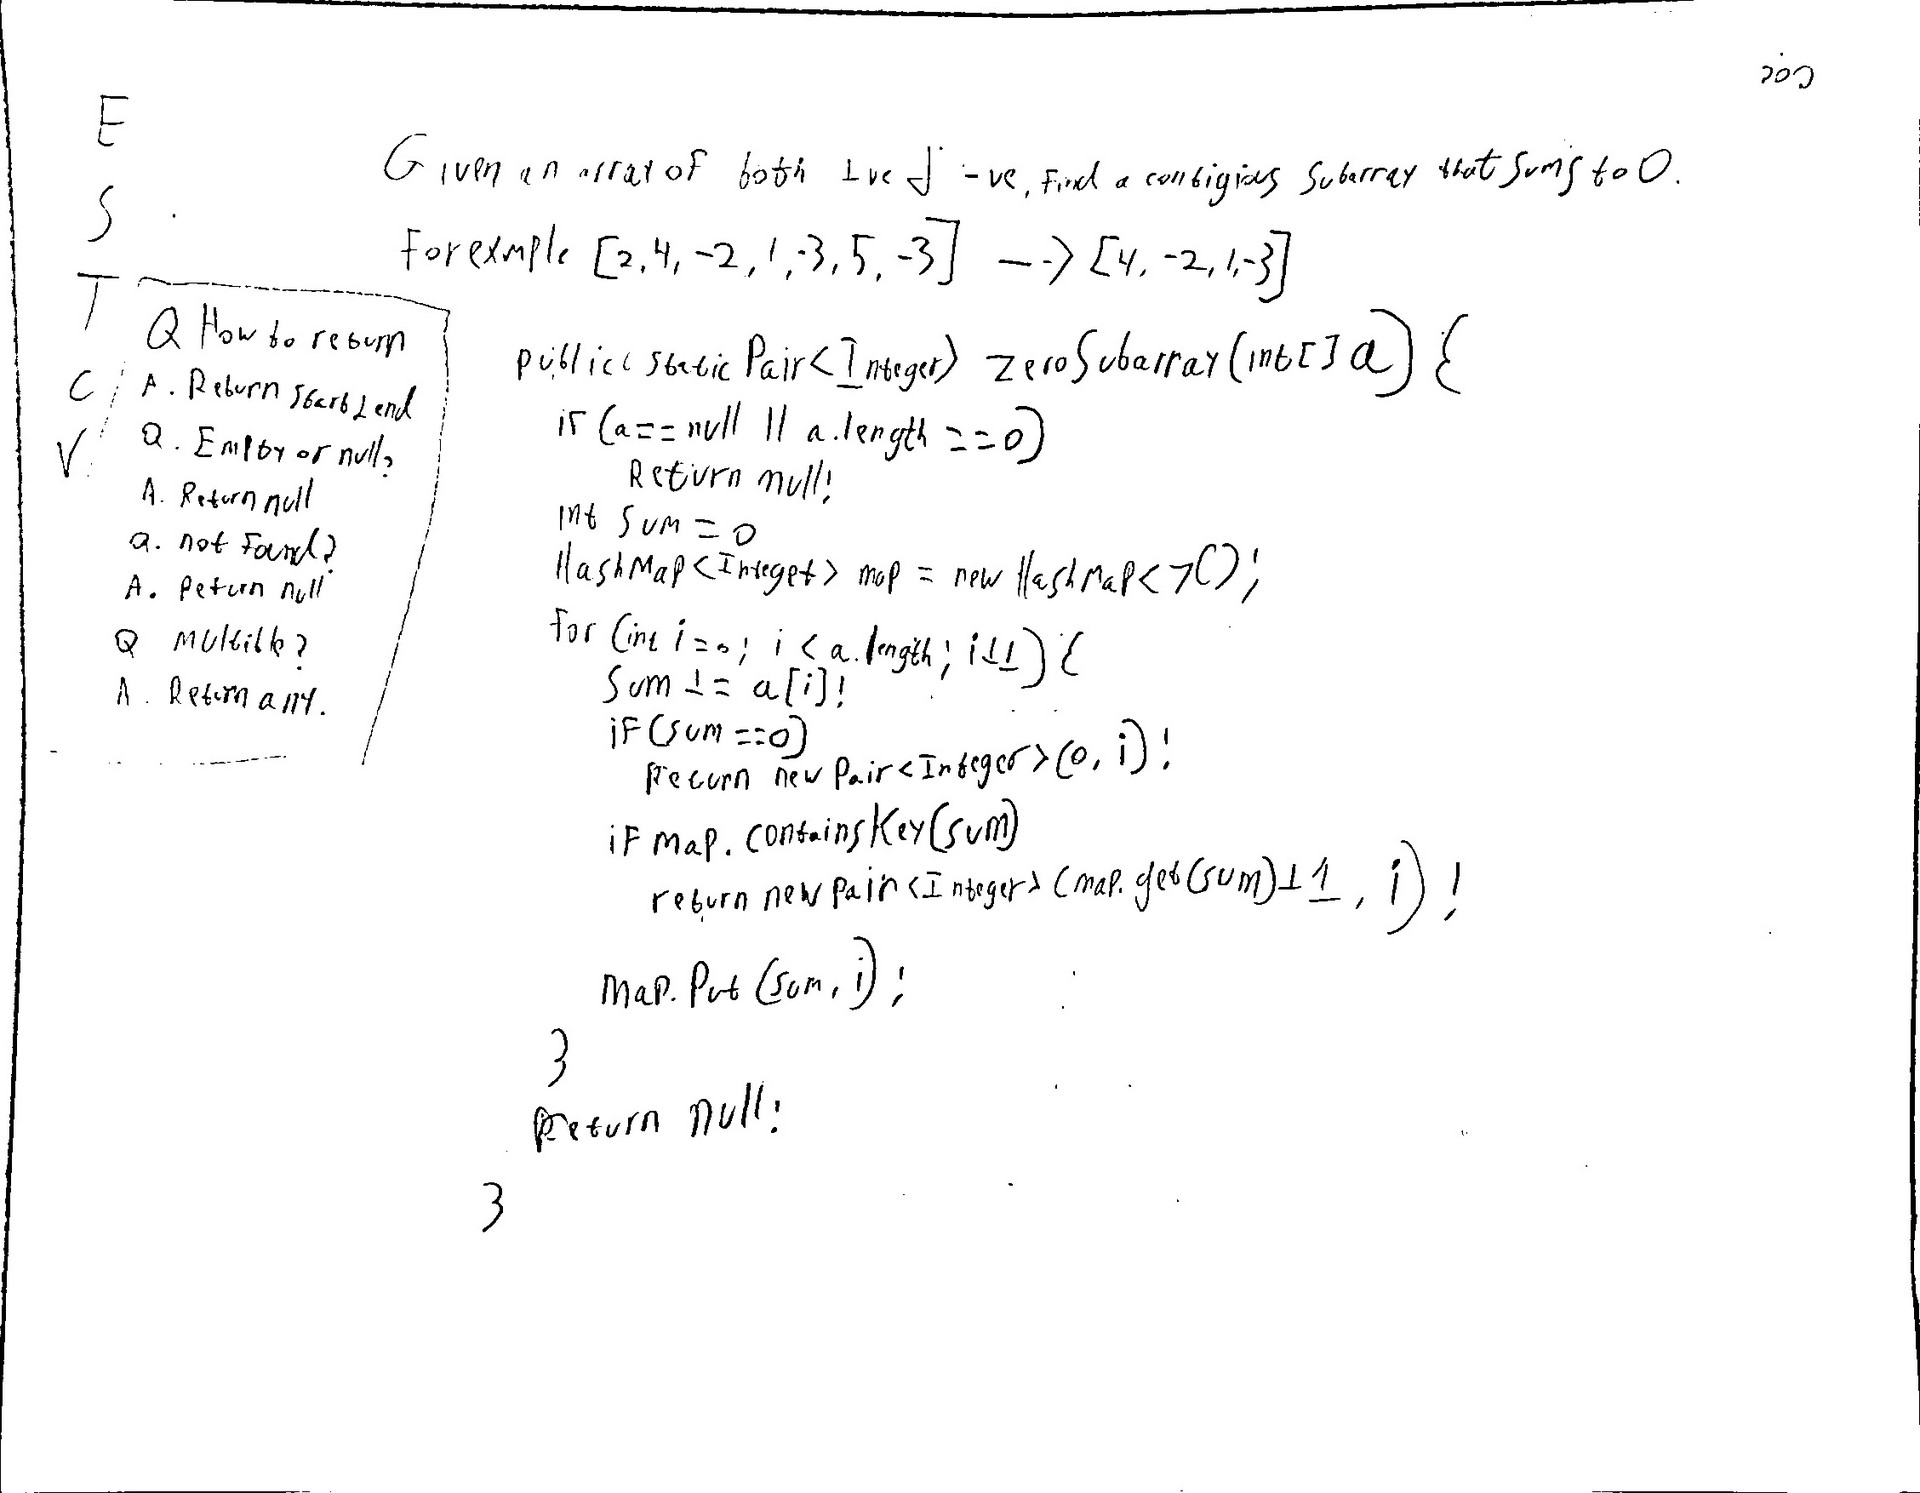 202
E
S
T
C
V
Given an array of both +ve & -ve, Find a contigious Subarray that sums to 0.
For exmple [2, 4, -2, 1, -3, 5, -3] --> [4, -2, 1, -3]
Q How to return
A. Return start & end
Q. Empty or null?
A. Return null
Q. not Found?
A. Return null
Q Multible?
A. Return any.
public static Pair<Integer> zeroSubarray(int[] a) {
if (a == null || a.length == 0)
Return null;
int sum = 0
HashMap<Integer> map = new HashMap<>();
for (int i = 0; i < a.length; i++) {
Sum += a[i];
if (sum == 0)
Return new Pair<Integer>(0, i);
if map.containsKey(sum)
return new Pair<Integer>(map.get(sum)+1, i);
map.Put(sum, i);
}
Return null;
}